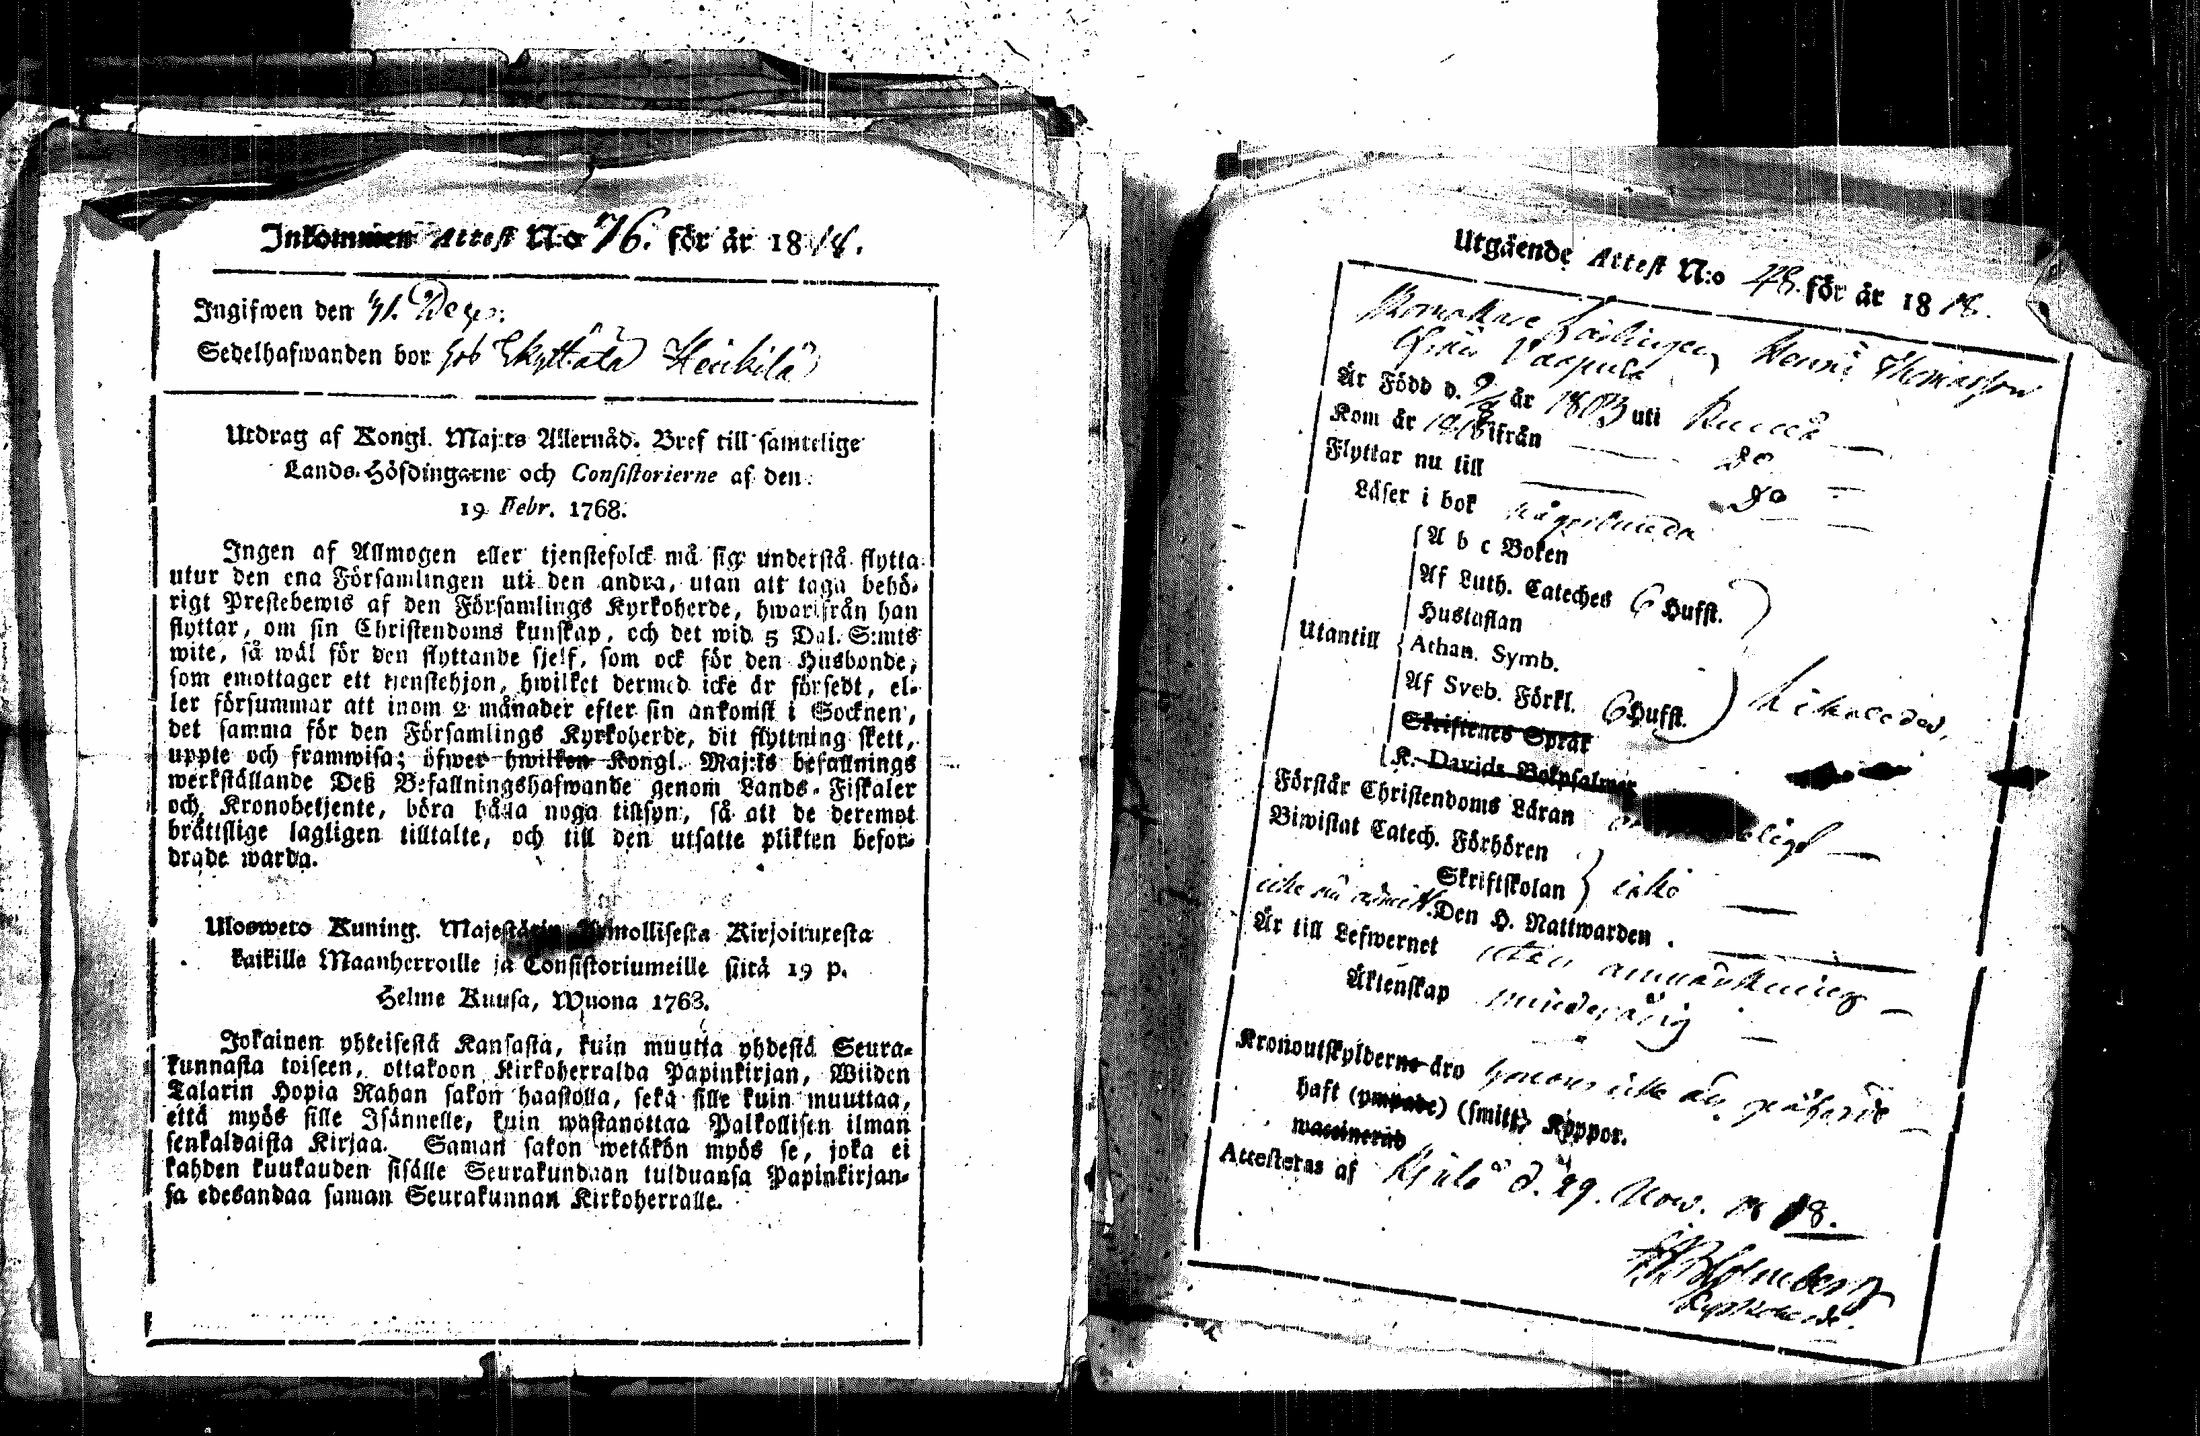 Inkommen Attest N:o 76. för år 1818.
Ingifwen den 31. Dec.
Sedelhafwanden bor hos Skyttälä Heikilä
Utdrag af Kongl. Maj:ts Allernåd. Bref till samtelige
Lands-Höfdingarne och Consistorierne af den
19 Febr. 1768.
Ingen af Allmogen eller tjenstefolck må sig understå flytta
utur den ena Församlingen uti den andra, utan att taga behö-
rigt Prestebewis af den Församlings Kyrkoherde, hwarifrån han
flyttar, om sin Christendoms kunskap, och det wid 5 Dal. S:mts
wite, så wäl för den flyttande sjelf, som ock för den Husbonde,
som emottager ett tjenstehjon, hwilket dermed icke är försedt, el-
ler försummar att inom 2 månader efter sin ankomst i Socknen,
det samma för den Församlings Kyrkoherde, dit flyttning skett,
uppte och framwisa; öfwer hwilken Kongl. Maj:ts befallnings
werkställande Deß Befallningshafwande genom Lands-Fiskaler
och Kronobetjente, böra hålla noga tillsyn, så att de deremot
bråttslige lagligen tilltalte, och till den utsatte plikten befor-
drade warda.
Uloswero Kuning. Majestätin Armollisesta Kirjoituxesta
kaikille Maanherroille ja Consistoriumeille siitä 19 p.
Helme Kuusa, Wuona 1763.
Jokainen yhteisestä Kansasta, kuin muutta yhdestä Seura-
kunnasta toiseen, ottakoon Kirkoherralda Papinkirjan, Wiiden
Talarin Hopia Rahan sakon haastolla, sekä sille kuin muuttaa,
että myös sille Isännelle, kuin wastanottaa Palkollisen ilman
senkaldaista Kirjaa. Saman sakon wetäkön myös se, joka ei
kahden kuukauden sisälle Seurakundaan tulduansa Papinkirjan-
sa edesandaa saman Seurakunnan Kirkoherralle.
Utgående Attest N:o 48. för år 1818.
Skomakare Lärlingen Henric Thomasson
ifrån
Är Född d. 9/8 år 1803 uti Kumo
Kom år 1818 ifrån — do —
Flyttar nu till — do —
Läser i bok någorlunda —
A b c Boken
Af Luth. Cateches 6 Hufst.
Hustaflan
Utantill Athan. Symb.
Af Sveb. Förkl. 6 Hufst. likaledes,
Skriftenes Språk
K. Davids Bokpsalmer
Förstår Christendoms Läran —
Biwistat Catech. Förhören
Skriftskolan icke —
icke nu admitt. Den H. Nattwarden . —
Är till Lefwernet utan anmärkning —
Äktenskap minderårig —
Kronoutskylderne äro honom icke än påförde —
haft (ympade) (smitt) Koppor.
waccinerad
Attesteras af Kjulo d. 29. Nov. 1818.
Holmberg
Kyrkoherde.